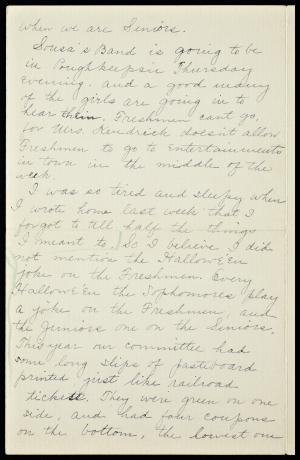 when we are Seniors.
Sousa's Band is going to be
in Poughkeepsie Thursday
evening. and a good many
of the girls are going in to
hear them. Freshmen cant go,
for Mrs. Kendrick doesn't allow
Freshmen to go to Entertainments
in town in the middle of the
week.
I was so tired and sleepy when
I wrote home last week that I
forgot to tell half the things
I meant to. So I believe I did
not mention the Hallowe'en
joke on the Freshmen. Every
Hallowe'en the Sophomores play
a joke on the Freshmen, and
the Juniors one on the Seniors.
This year our committee had
some long slips of pasteboard
printed just like railroad
tickets. They were green on one
side, and had four coupons
on the bottom, the lowest one